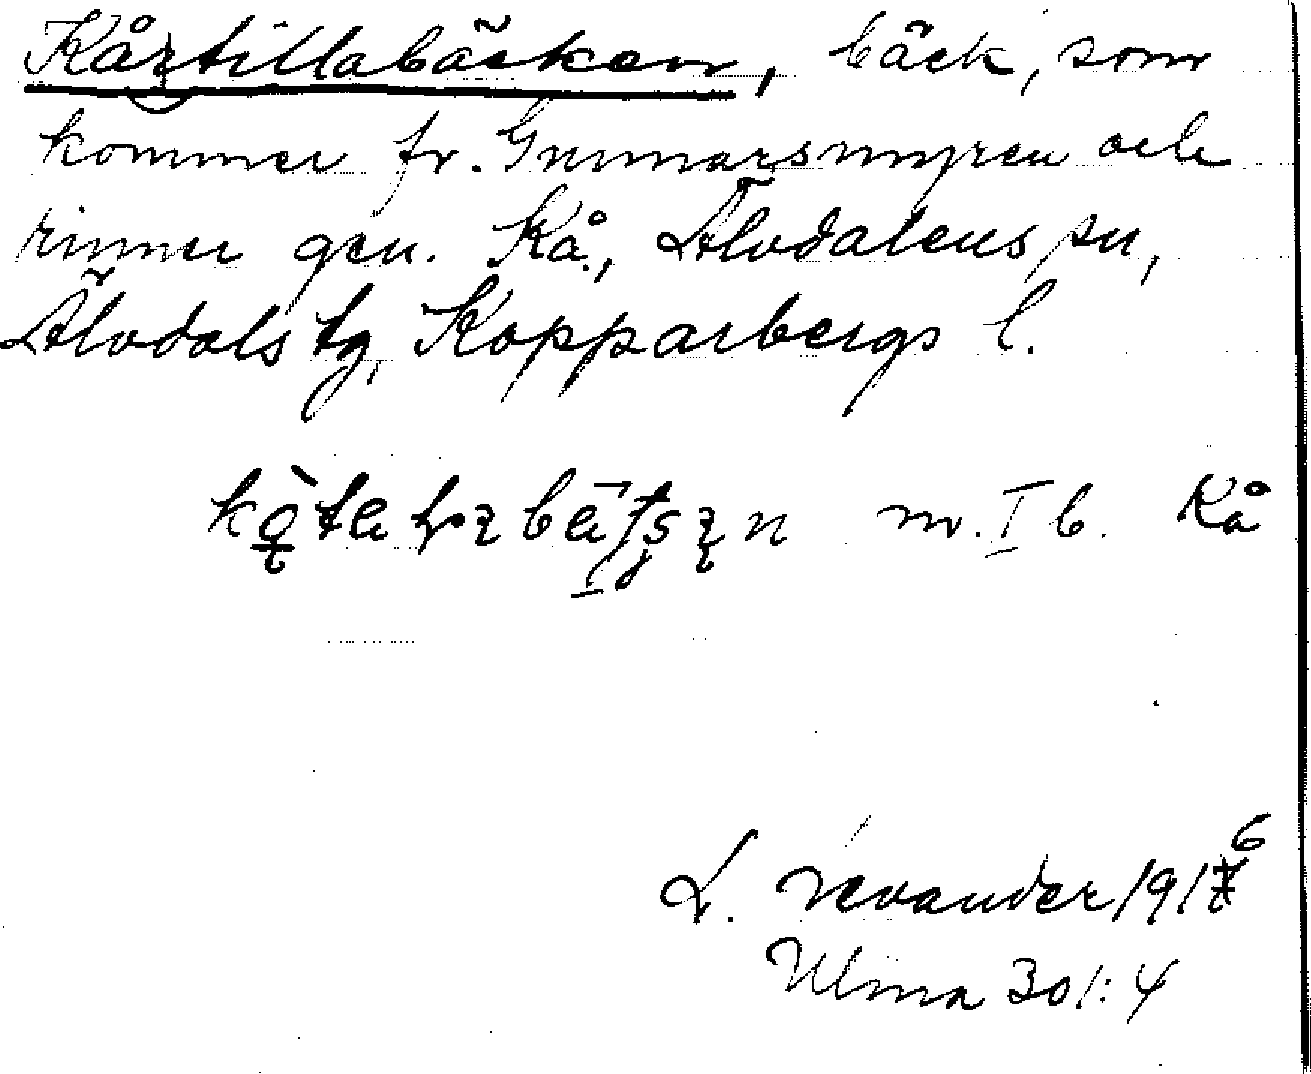 Kårtillabäcken, bäck, som
kommer fr. Gunnarsmyren och
rinner gen. Kå, Älvdalens sn,
Älvdals tg, Kopparbergs l.
m. I b. Kå
L. Levander 1916
Ulma 301:4